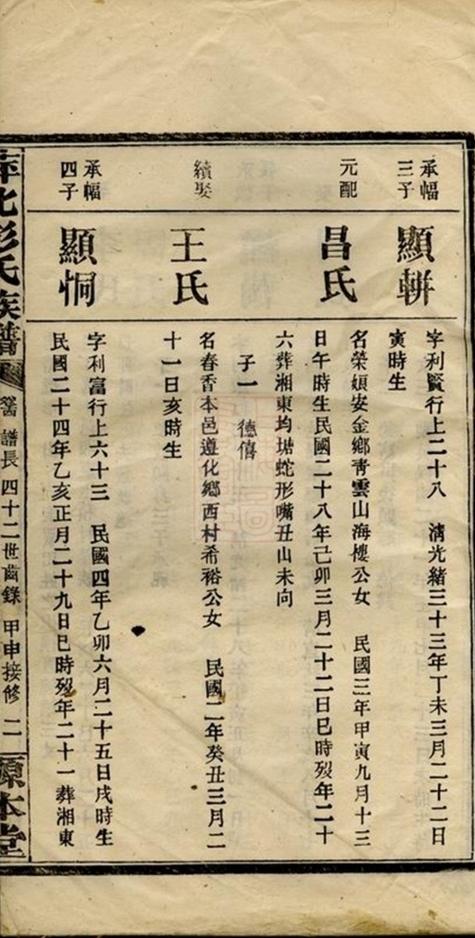 承幅
三子
顯輧
字利賢行上二十八　清光緒三十三年丁未三月二十二日
寅時生
元配
昌氏
名榮媜安金鄉青雲山海樓公女　民國三年甲寅九月十三
日午時生民國二十八年己卯三月二十二日巳時歿年二十
六葬湘東均塘蛇形嘴丑山未向
子一　德僖
續娶
王氏
名春香本邑遵化鄉西村希裕公女　民國二年癸丑三月二
十一日亥時生
承幅
四子
顯恫
字利富行上六十三　民國四年乙卯六月二十五日戌時生
民國二十四年乙亥正月二十九日巳時歿年二十一葬湘東
萍北彭氏族譜　譜長　四十二世齒錄　甲申接修　二　源本堂